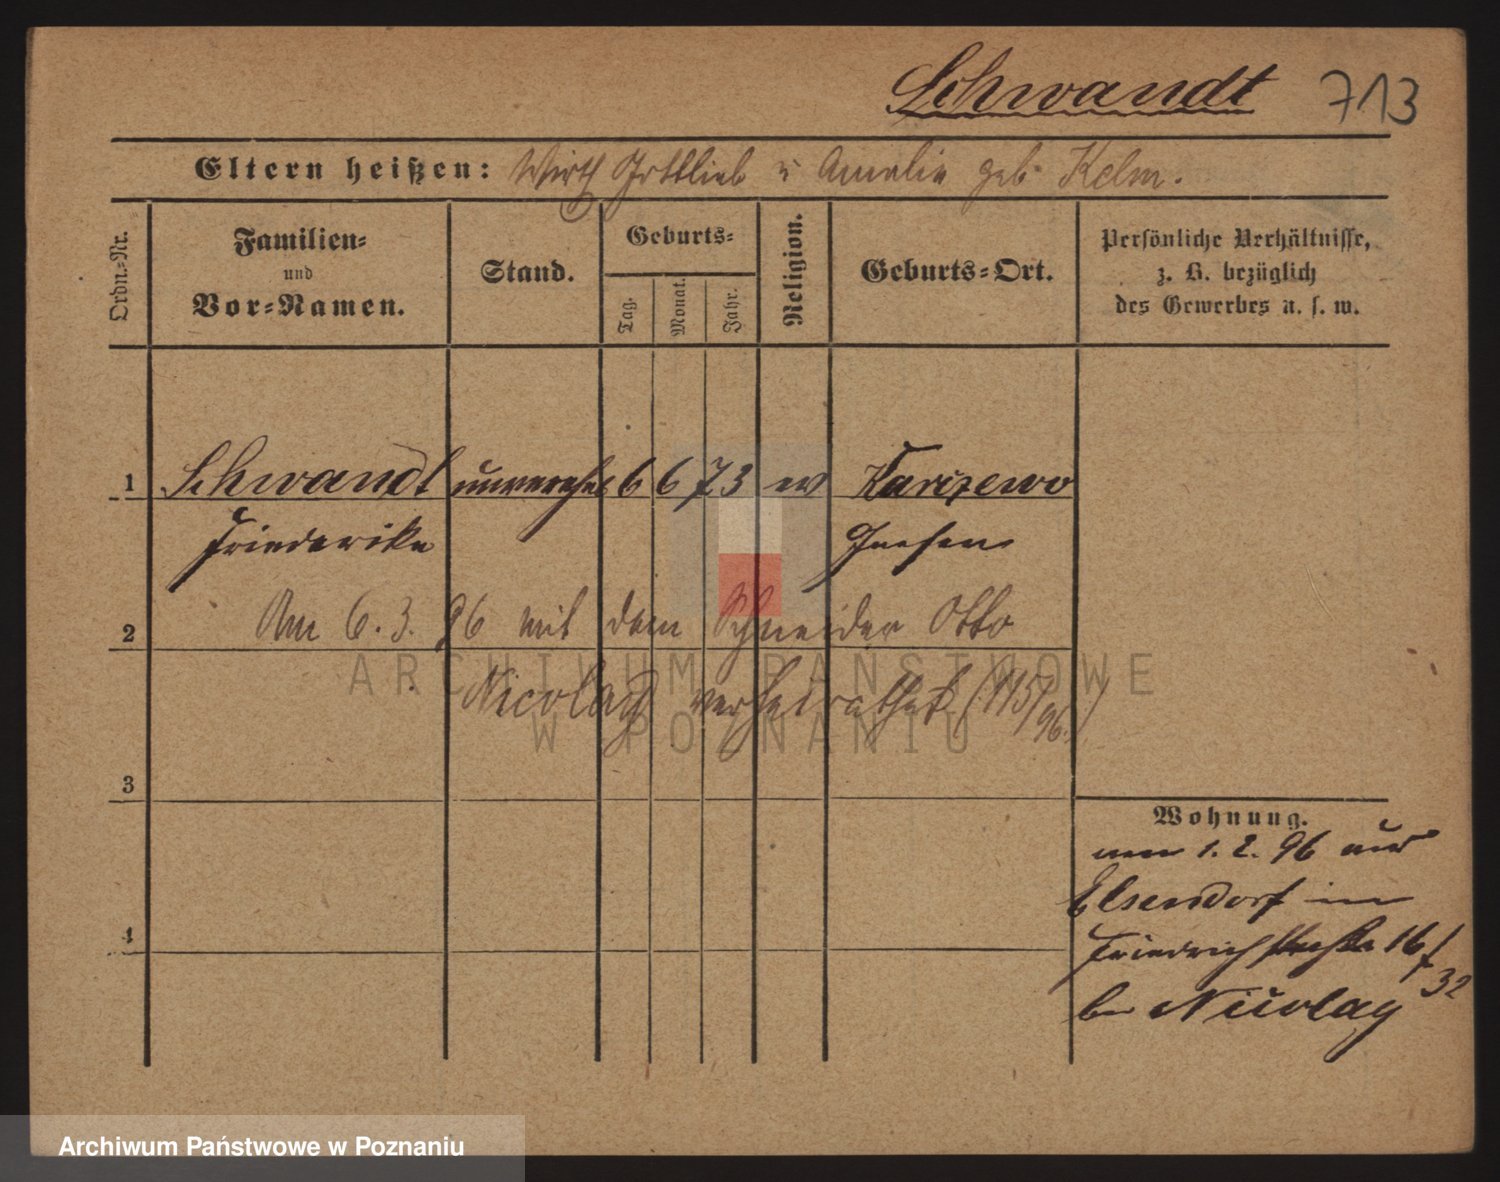 Schwandt 713
Eltern heißen: Wirth Gottlieb u Amalie geb. Kelm.
Ordn.-Nr.
Familien-
und
Vor-Namen.
Stand.
Geburts-
Tag.
Monat.
Jahr.
Religion.
Geburts-Ort.
Persönliche Verhältnisse,
z. B. bezüglich
des Gewerbes u. s. w.
1 Schwandt unverehel 6 6 73 ev Karczewo
Friederike Gnesen
2 Am 6. 3. 96 mit dem Schneider Otto
Nicolay verheirathet (115/96.)
ARCHIWUM PAŃSTWOWE
W POZNANIU
3
Wohnung.
1. 2. 96 aus
Elsendorf in
4
Friedrichstraße 16/
32
bei Nicolay
Archiwum Państwowe w Poznaniu